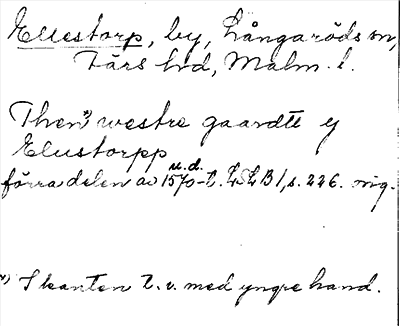 Ellestorp, by, Långaröds sn,
Färs hd, Malm. l.
Then *) westre gaardtt ij
Elustorpp
förra delen av 1570-t. u.d. LLB 1, s. 226. orig.
*) I kanten t. v. med yngre hand.